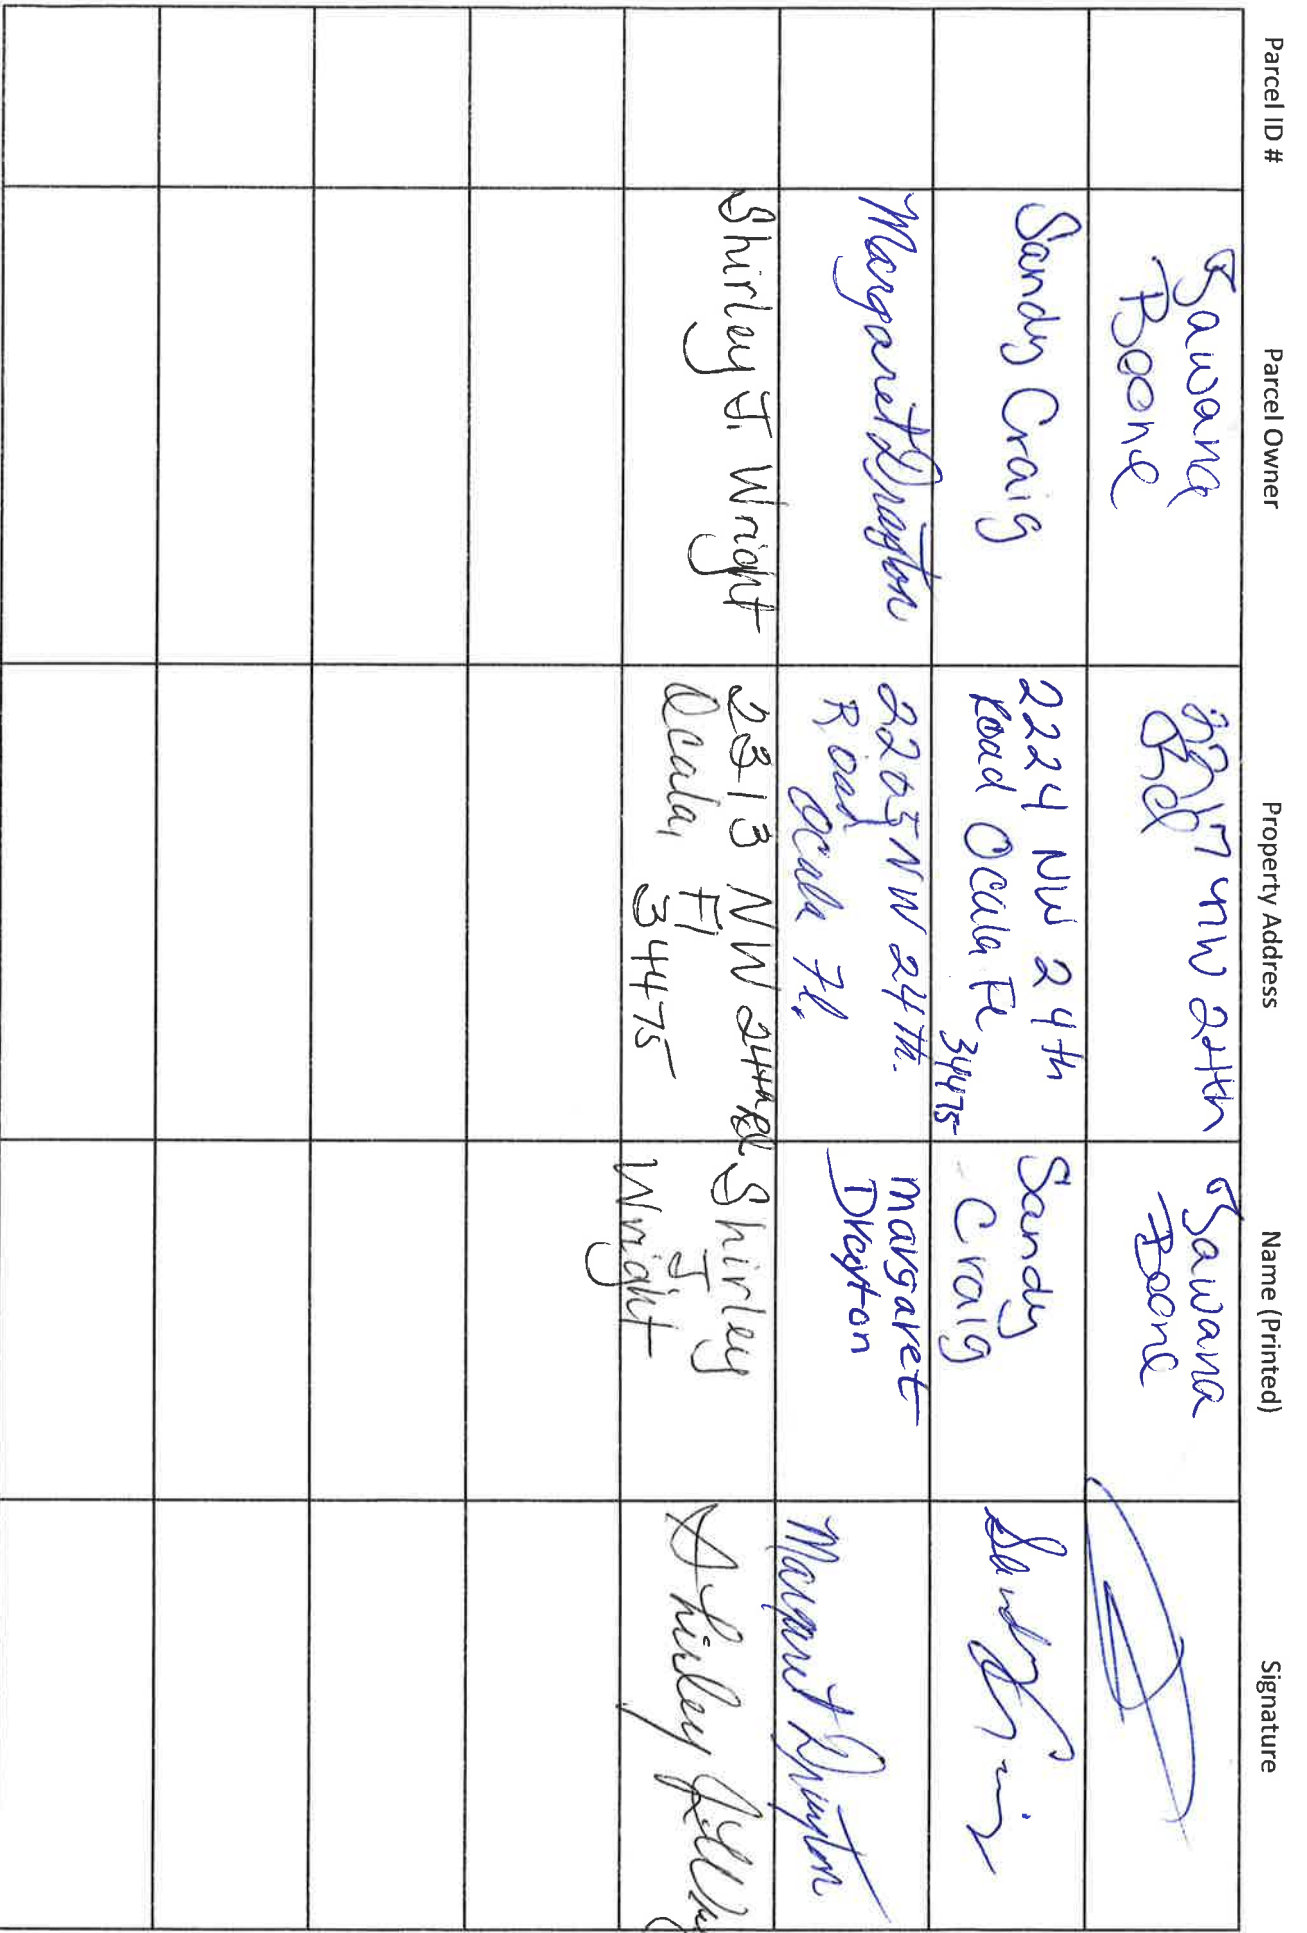 Parcel ID # Parcel Owner Property Address Name (Printed) Signature
Sawana
Boone
NW 24th
Rd
Sawana
Boone
Sandy Craig
2224 NW 24th
Road Ocala Fl
34475
Sandy
Craig
Margaret Drayton
2205 NW 24th.
Road
Ocala Fl.
margaret
Drayton
Margaret Drayton
Shirley J. Wright
2313 NW 24th Rd
Ocala, Fl
34475
Shirley
J
Wright